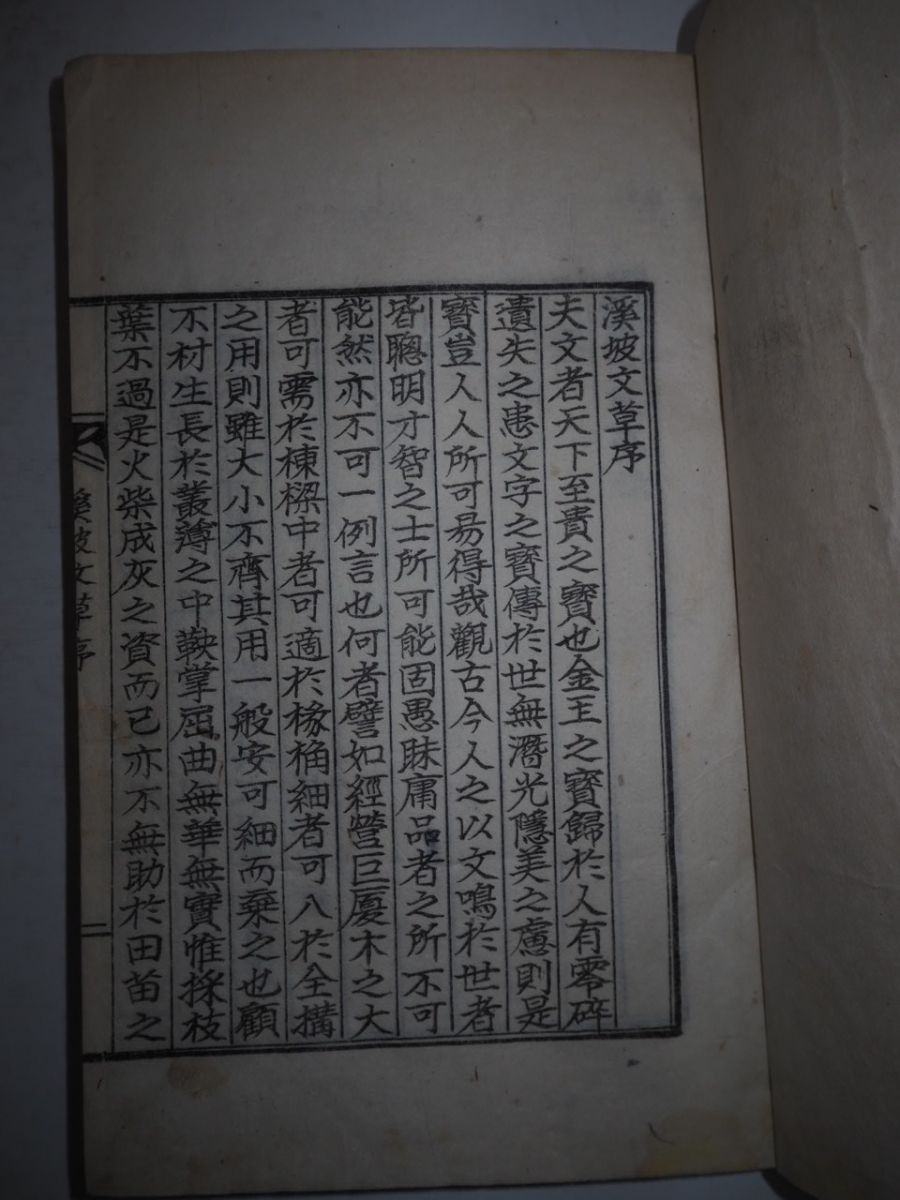 溪坡文草序
夫文者天下至貴之寶也金玉之寶歸於人有零碎
遺失之患文字之寶傳於世無潛光隱美之慮則是
寶豈人人所可易得哉觀古今人之以文鳴於世者
皆聰明才智之士所可能固愚昧庸品者之所不可
能然亦不可一例言也何者譬如經營巨廈木之大
者可需於棟樑中者可適於椽桷細者可入於全搆
之用則雖大小不齊其用一般安可細而棄之也顧
不材生長於叢薄之中鞅掌屈曲無華無實惟採枝
葉不過是火柴成灰之資而已亦不無助於田苗之
溪坡文草序